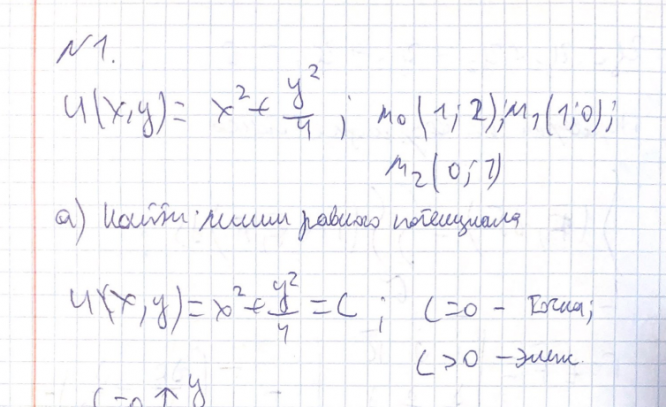 N1.
U(x,y) = x² + y²/4 ; M₀(1;2), M₁(1;0);
M₂(0;1)
а) Найти: линии равного потенциала
U(x,y) = x² + y²/4 = C ; C=0 - точка;
C>0 - элип.
C=0 ↑ y